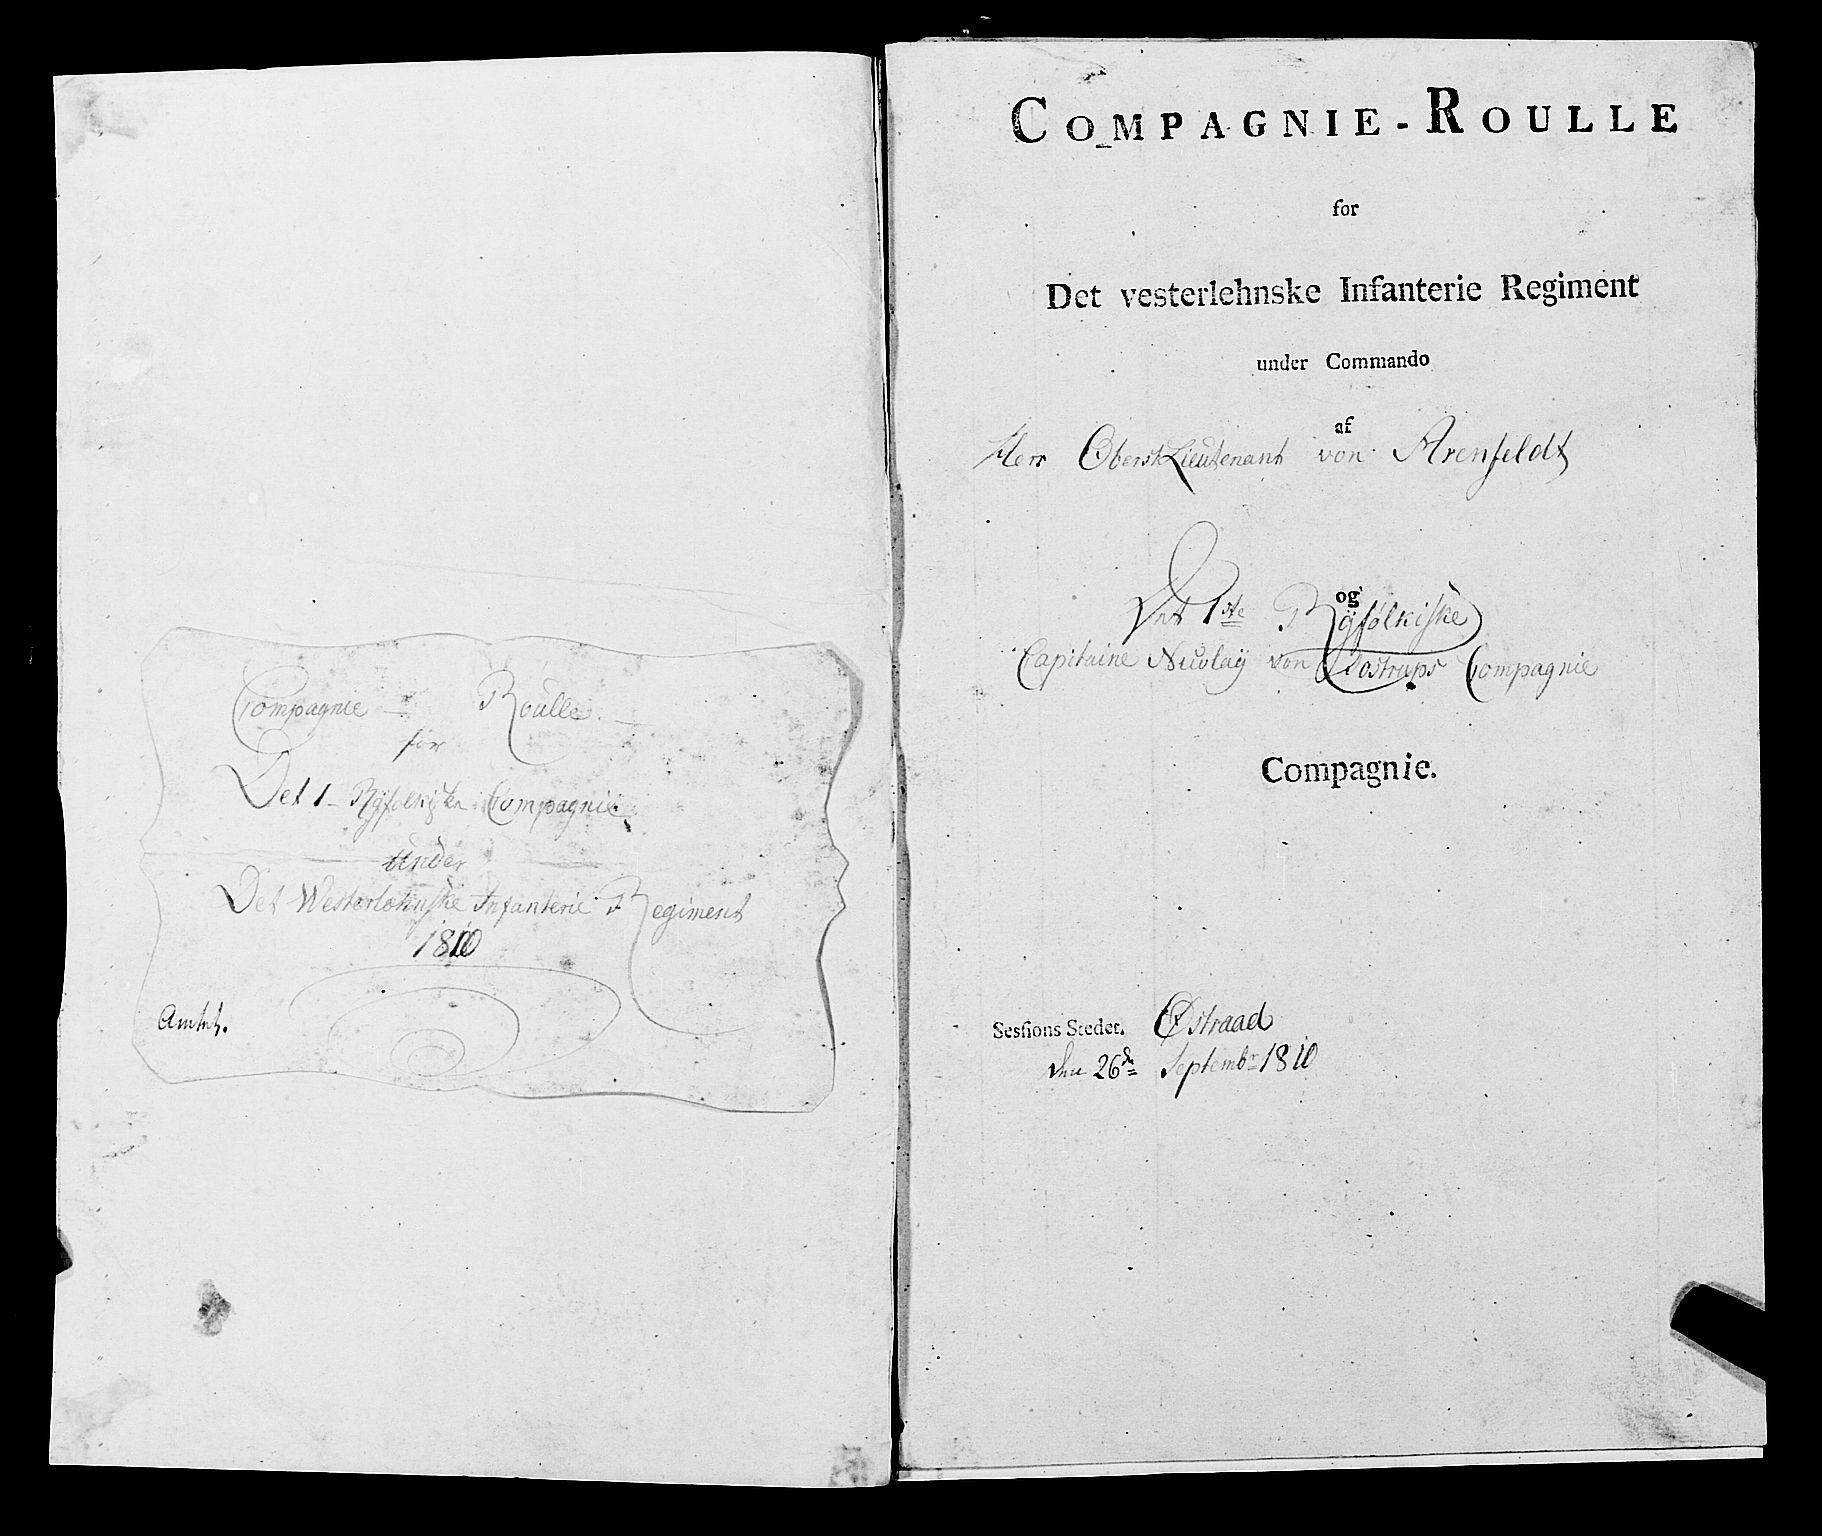 Compagnie – Roulle.
for
Det 1 – Ryfolkiske Compagnie
under
Det Westerlehnske Infanterie Regiment
1810
Amtet.
COMPAGNIE-ROULLE
for
Det vesterlehnske Infanterie Regiment
under Commando
af
Herr OberstLieutenant von Arenfeldt
og
Det 1ste Ryfolkiske
Capitaine Nicolaÿ von Compagnie
Compagnie.
Sessions Stedet. Østraad
den 26de Septembr 1810